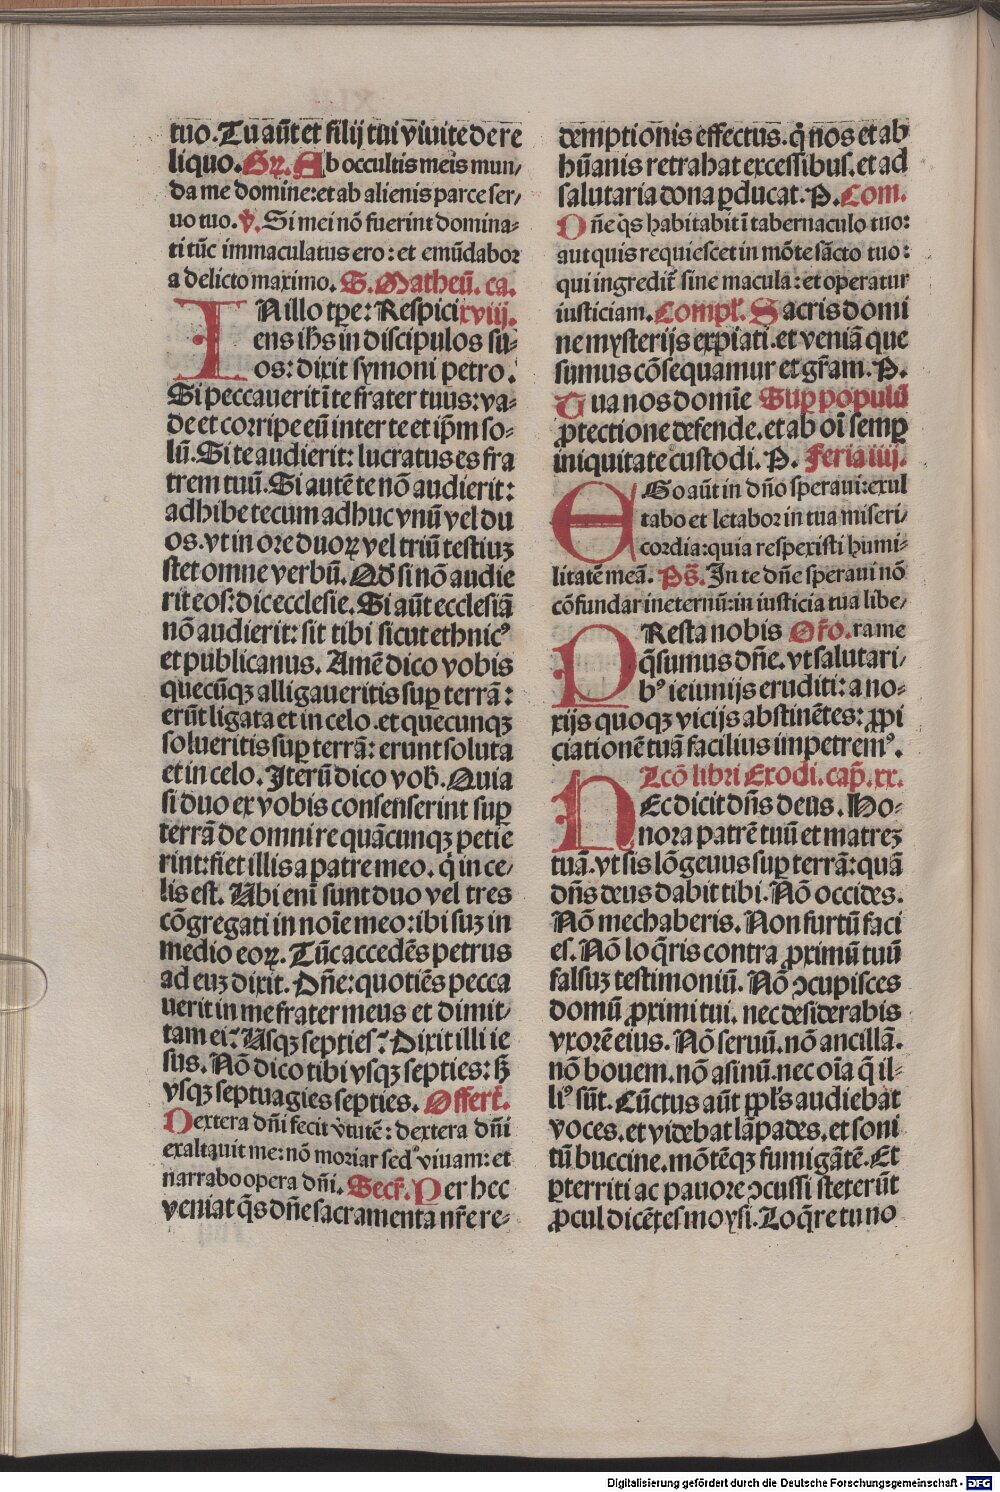 tuo. Tu aūt et filij tui viuite de re
liquo. Gr̄. Ab occultis meis mun/
da me domine: et ab alienis parce ser/
uo tuo. v̄. Si mei nō fuerint domina-
ti tūc immaculatus ero: et emūdabor
a delicto maximo. S. Matheū. ca.
IN illo tp̄e: Respici xviij.
ens ihs in discipulos su-
os: dixit symoni petro.
Si peccauerit ī te frater tuus: va-
de et corripe eū inter te et ip̄m so-
lū. Si te audierit: lucratus es fra
trem tuū. Si autē te nō audierit:
adhibe tecum adhuc vnū vel du
os. vt in ore duoꝝ vel triū testiuꝫ
stet omne verbū. Qd̄ si nō audie
rit eos: dic ecclesie. Si aūt ecclesiā
nō audierit: sit tibi sicut ethnicꝰ
et publicanus. Amē dico vobis
quecūqꝫ alligaueritis suꝑ terrā:
erūt ligata et in celo. et quecunqꝫ
solueritis suꝑ terrā: erunt soluta
et in celo. Iterū dico vob̄. Quia
si duo ex vobis consenserint suꝑ
terrā de omni re quācunqꝫ petie
rint: fiet illis a patre meo. q̇ in ce/
lis est. Ubi enī sunt duo vel tres
cōgregati in noīe meo: ibi suꝫ in
medio eoꝝ. Tūc accedēs petrus
ad euꝫ dixit. Dn̄e: quotiēs pecca
uerit in me frater meus et dimit/
tam ei? Usqꝫ septies? Dixit illi ie
sus. Nō dico tibi vsqꝫ septies: sꝫ
vsqꝫ septuagies septies. Offert̄.
Dextera dn̄i fecit v̇tutē: dextera dn̄i
exaltauit me: nō moriar sed viuam: et
narrabo opera dn̄i. Secr̄. Per hec
veniat q̄s dn̄e sacramenta nr̄e re-
demptionis effectus. q̇ nos et ab
hūanis retrahat excessibus. et ad
salutaria dona ꝑducat. P. Com.
Dn̄e q̄s habitabit ī tabernaculo tuo:
aut quis requiescet in mōte sācto tuo:
qui ingredit̄ sine macula: et operatur
iusticiam. Compl̄. Sacris domi
ne mysterijs expiati. et veniā que
sumus cōsequamur et gr̄am. P.
Tua nos domīe Suꝑ populū
ꝓtectione defende. et ab oī semꝑ
iniquitate custodi. P. Feria iiij.
EGo aūt in dn̄o speraui: exul
tabo et letabor in tua miseri/
cordia: quia respexisti humi-
litatē meā. Ps̄. In te dn̄e speraui nō
cōfundar in eternū: in iusticia tua libe/
PResta nobis Or̄o. ra me
q̄sumus dn̄e. vt salutari/
bꝰ ieiunijs eruditi: a no-
xijs quoqꝫ vicijs abstinētes: ꝓpi
ciationē tuā facilius impetremꝰ.
Lcō libri Exodi. cap̄. xx.
NEc dicit dn̄s deus. Ho-
nora patrē tuū et matreꝫ
tuā. vt sis lōgeuus suꝑ terrā: quā
dn̄s deus dabit tibi. Nō occides.
Nō mechaberis. Non furtū faci
es. Nō loq̄ris contra ꝓximū tuū
falsuꝫ testimoniū. Nō ꝯcupisces
domū ꝓximi tui. nec desiderabis
vxorē eius. Nō seruū. nō ancillā.
nō bouem. nō asinū. nec oīa q̄ il-
liꝰ sūt. Cūctus aūt ppl̄s audiebat
voces. et videbat lāpades. et soni
tū buccine. mōtēqꝫ fumigātē. Et
ꝑterriti ac pauore ꝯcussi steterūt
ꝓcul dicētes moysi. Loq̄re tu no
Digitalisierung gefördert durch die Deutsche Forschungsgemeinschaft - DFG